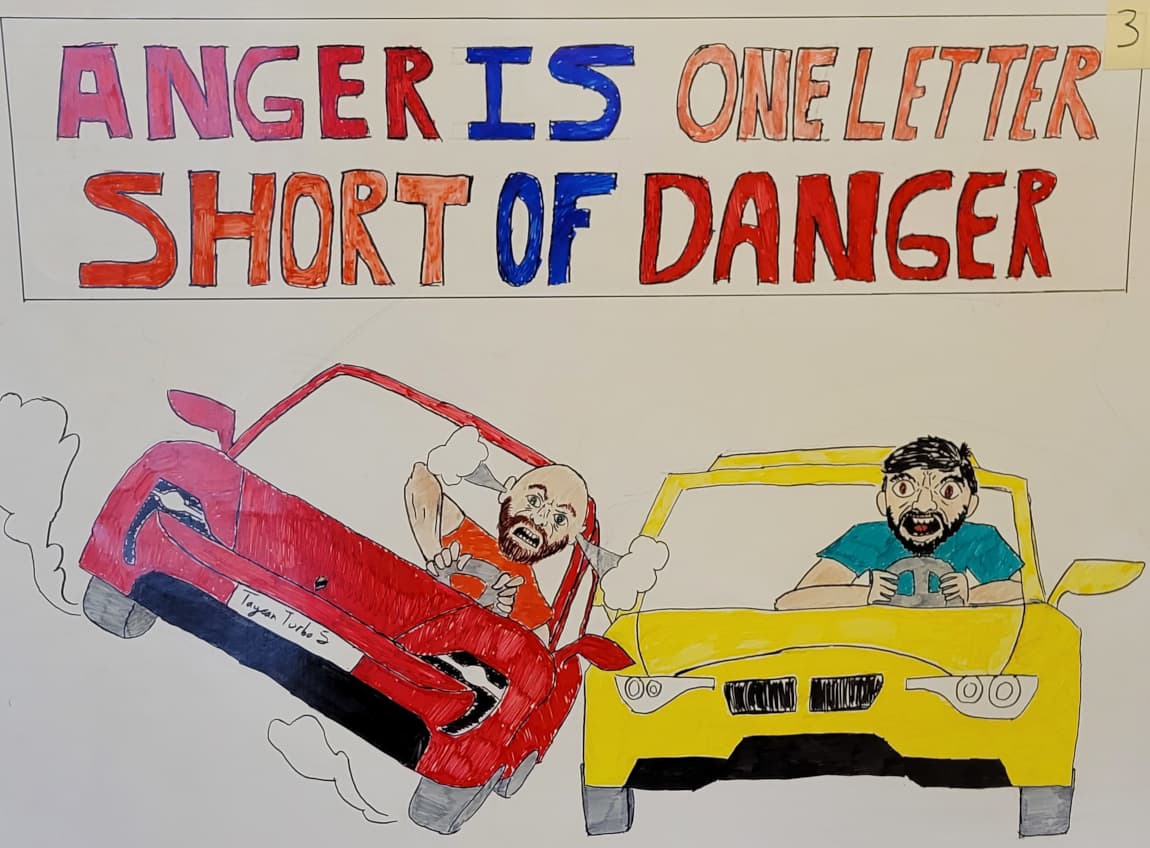 3
ANGER IS ONE LETTER
SHORT OF DANGER
Taycan Turbo S